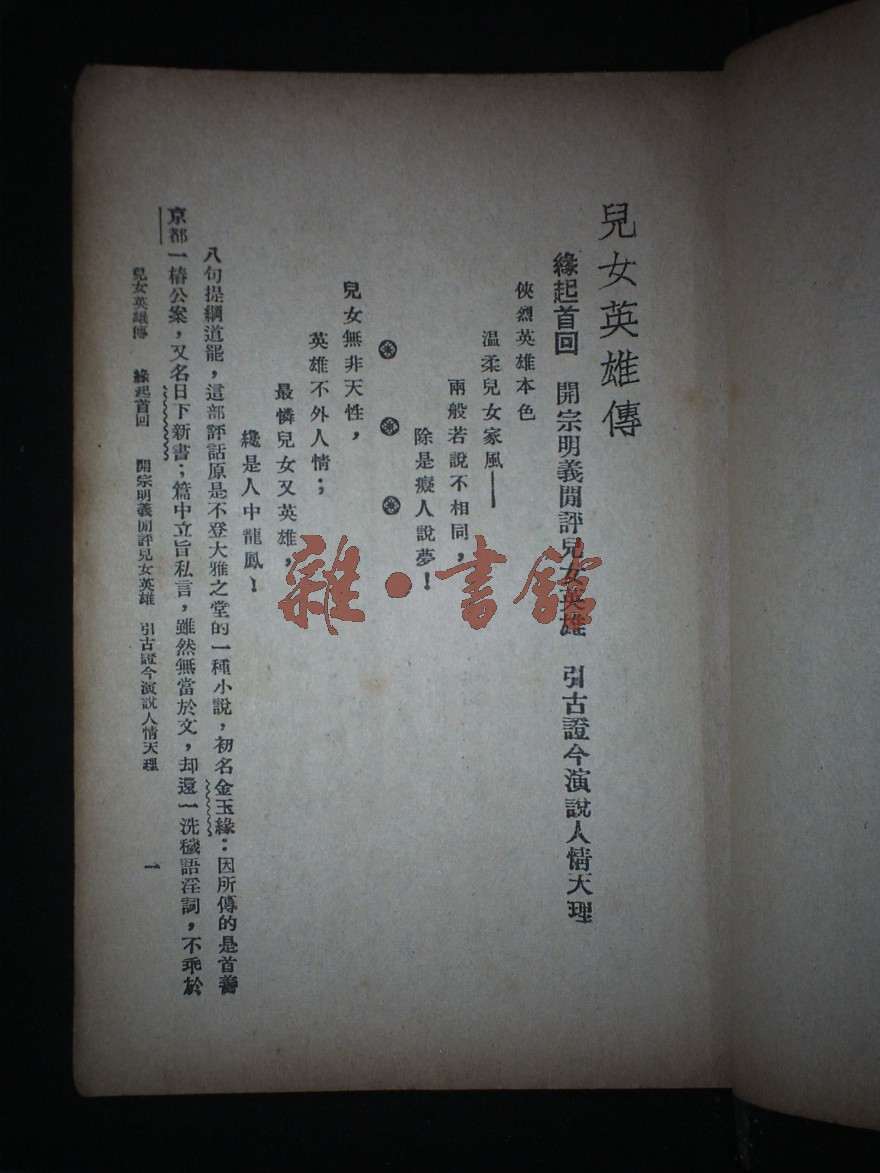 兒女英雄傳
緣起首回 開宗明義閒評兒女英雄 引古證今演說人情天理
俠烈英雄本色
溫柔兒女家風——
兩般若說不相同，
除是癡人說夢！
兒女無非天性，
英雄不外人情；
最憐兒女又英雄，
纔是人中龍鳳！
八句提綱道罷，這部評話原是不登大雅之堂的一種小說，初名金玉緣：因所傳的是首善
京都一樁公案，又名日下新書；篇中立旨私言，雖然無當於文，却還一洗穢語淫詞，不乖於
兒女英雄傳 緣起首回 開宗明義閒評兒女英雄 引古證今演說人情天理 一
雜·書館